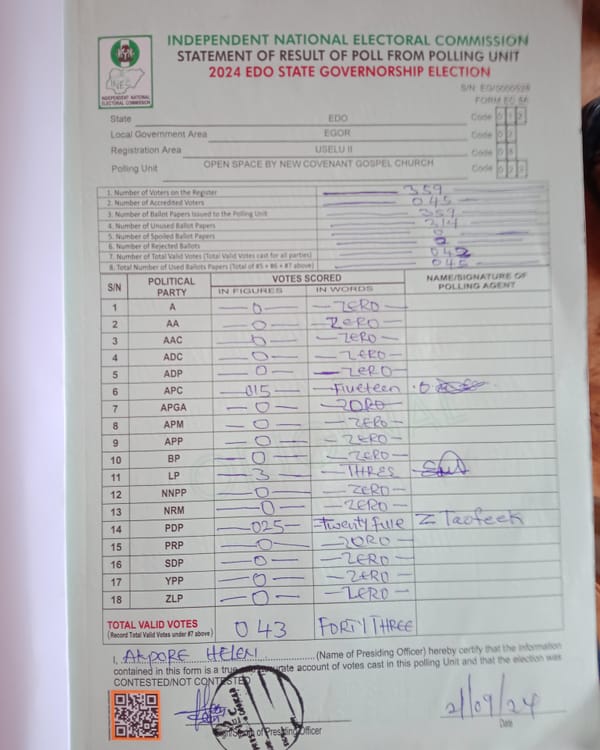 INDEPENDENT NATIONAL ELECTORAL COMMISSION
STATEMENT OF RESULT OF POLL FROM POLLING UNIT
2024 EDO STATE GOVERNORSHIP ELECTION
INDEPENDENT NATIONAL
ELECTORAL COMMISSION
FORM EC 8A
State EDO Code
Local Government Area EGOR Code
Registration Area USELU II Code
Polling Unit OPEN SPACE BY NEW COVENANT GOSPEL CHURCH Code
1. Number of Voters on the Register 359
2. Number of Accredited Voters 045
3. Number of Ballot Papers Issued to the Polling Unit 359
4. Number of Unused Ballot Papers 314
5. Number of Spoiled Ballot Papers 0
6. Number of Rejected Ballots
7. Number of Total Valid Votes (Total Valid Votes cast for all parties)
8. Total Number of Used Ballots Papers (Total of #5 + #6 + #7 above) 045
S/N POLITICAL PARTY VOTES SCORED NAME/SIGNATURE OF POLLING AGENT
IN FIGURES IN WORDS
1 A 0 ZERO
2 AA 0 ZERO
3 AAC 0 ZERO
4 ADC 0 ZERO
5 ADP 0 ZERO
6 APC 015 Fiveteen
7 APGA 0 ZORO
8 APM 0 ZERO
9 APP 0 ZERO
10 BP 0 ZERO
11 LP 3 THRES
12 NNPP 0 ZERO
13 NRM 0 ZERO
14 PDP 025 Twenty five Z Taofeek
15 PRP 0 ZORO
16 SDP 0 ZERO
17 YPP 0 ZERO
18 ZLP 0 ZERO
TOTAL VALID VOTES 043 FORTY THREE
(Record Total Valid Votes under #7 above)
I, AKPORE HELEN (Name of Presiding Officer) hereby certify that the information
contained in this form is a true and accurate account of votes cast in this polling Unit and that the election was
CONTESTED/NOT CONTESTED
Signature of Presiding Officer
21/09/24
Date